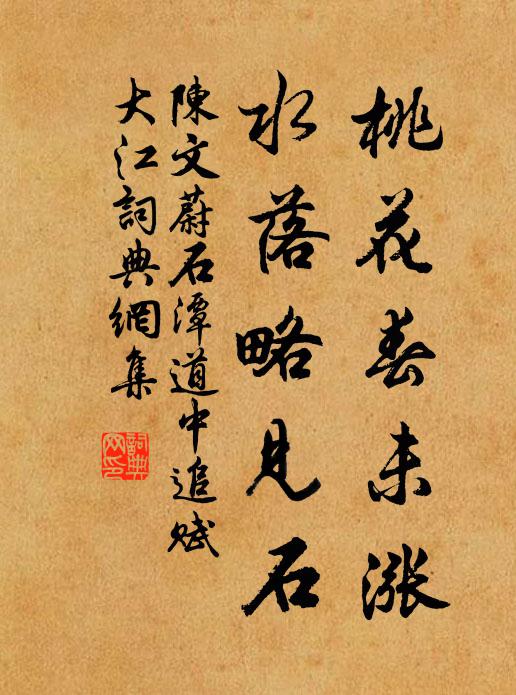 桃花春未漲
水落略見石
陳文蔚石潭道中追賦
大江詞典網集
詞典網印